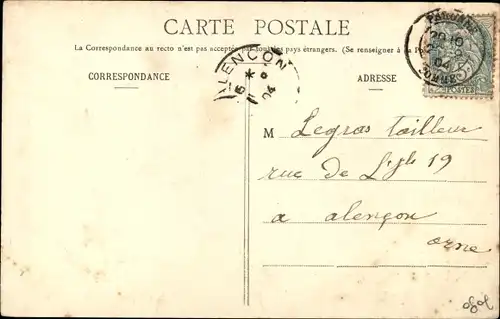 CARTE POSTALE
La Correspondance au recto n'est pas acceptée par tous les pays étrangers. (Se renseigner à la Poste)
CORRESPONDANCE
ADRESSE
ALENÇON
04
POSTES
ORNE
04
M Legras tailleur
rue de L'
19
a alençon
orne